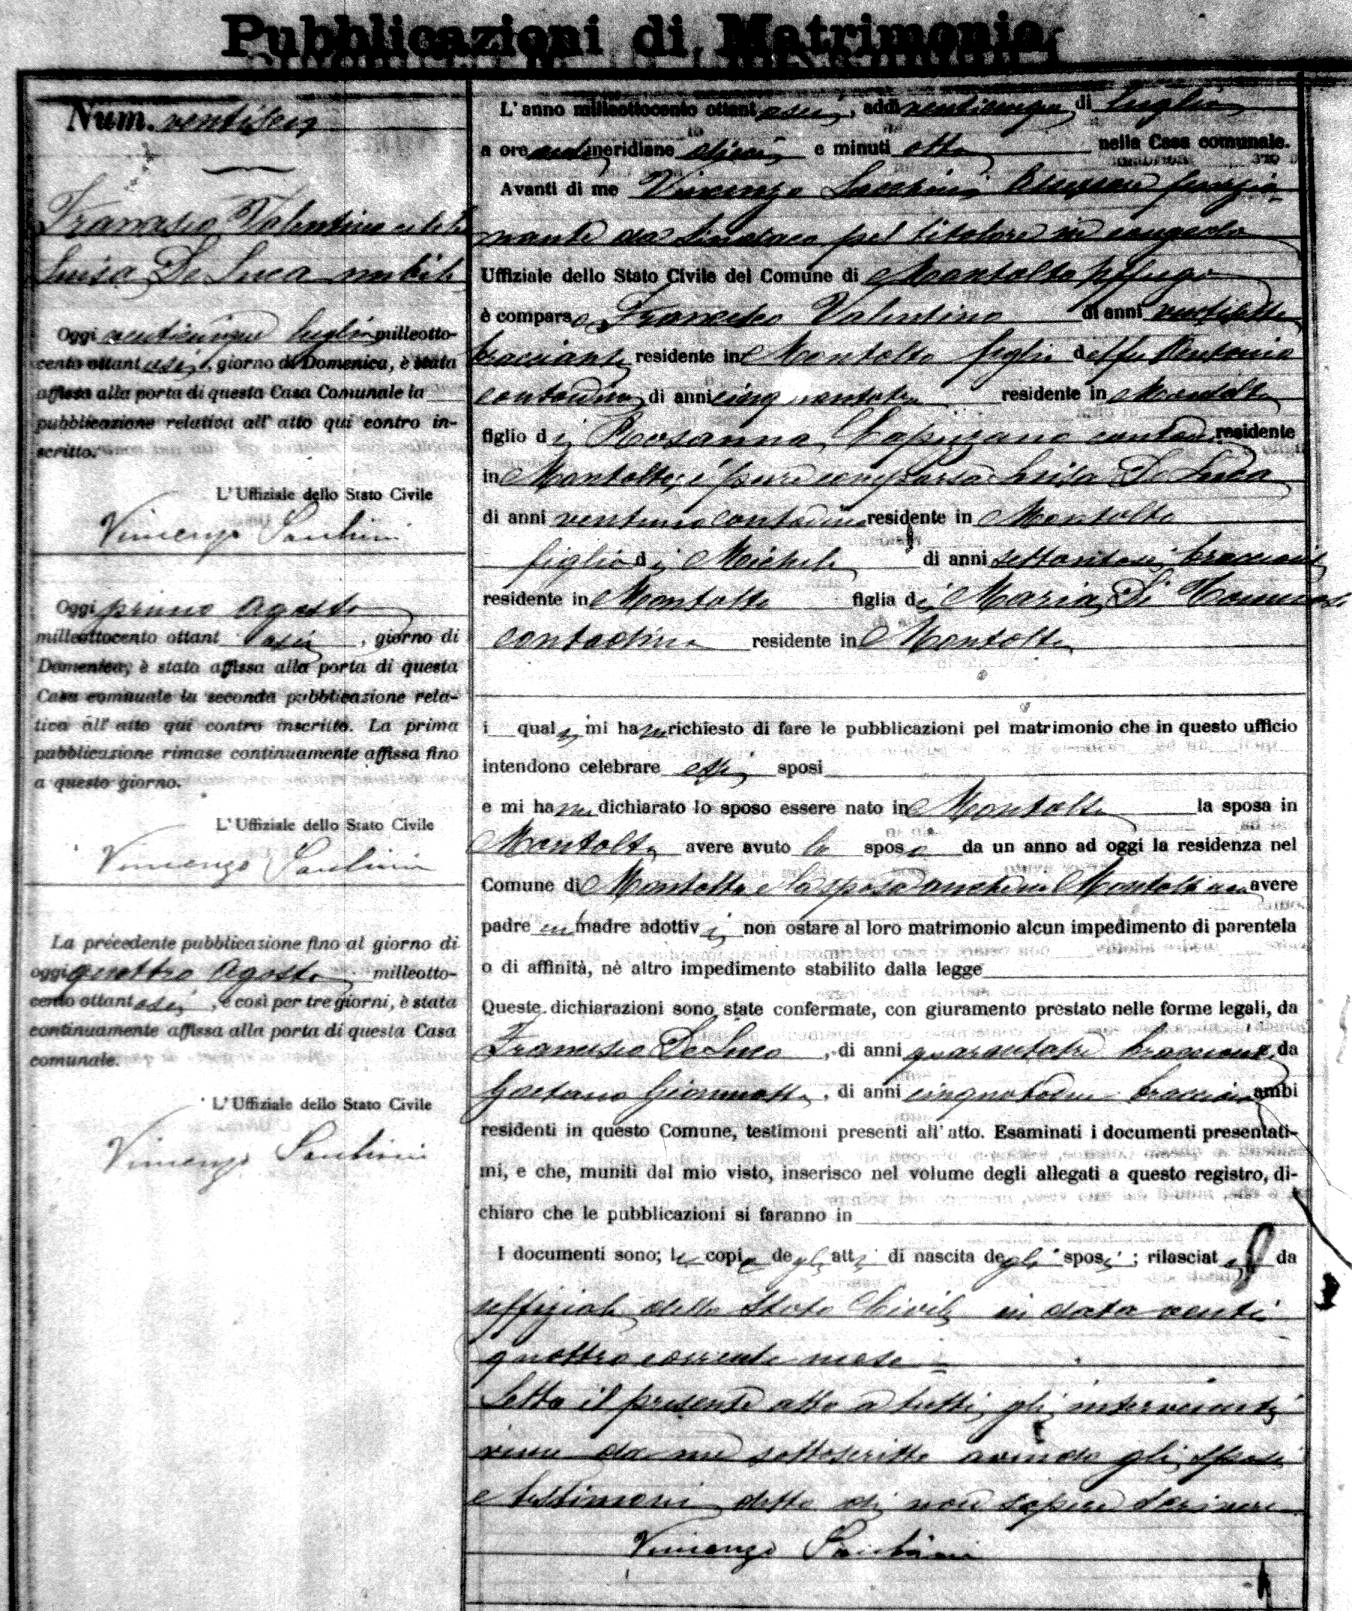 Pubblicazioni di Matrimonio
Num. ventisei
Francesco Valentino celibe
Luisa De Luca nubile
Oggi venticinque luglio milleotto-
cento ottantasei, giorno di Domenica, è stata
affissa alla porta di questa Casa Comunale la
pubblicazione relativa all' atto qui contro in-
scritto.
L' Uffiziale dello Stato Civile
Vincenzo
Oggi primo Agosto
milleottocento ottantasei, giorno di
Domenica, è stata affissa alla porta di questa
Casa comunale la seconda pubblicazione rela-
tiva all' atto qui contro inscritto. La prima
pubblicazione rimase continuamente affissa fino
a questo giorno.
L' Uffiziale dello Stato Civile
Vincenzo
La precedente pubblicazione fino al giorno di
oggi quattro Agosto milleotto-
cento ottantasei, e così per tre giorni, è stata
continuamente affissa alla porta di questa Casa
comunale.
L' Uffiziale dello Stato Civile
Vincenzo
L' anno milleottocento ottantasei, addì venticinque di luglio
a ore antimeridiane dieci e minuti otto nella Casa comunale.
Avanti di me Vincenzo Assessore funzio-
nante da Sindaco pel titolare in congedo
Uffiziale dello Stato Civile del Comune di Montalto Uffugo
è comparso Francesco Valentino di anni ventisette
bracciante residente in Montalto figlio del fu Antonio
contadino di anni residente in Montalto
figlio di Rosanna Capuzano contadina residente
in Montalto; è pure comparsa Luisa De Luca
di anni ventuno contadina residente in Montalto
figlia di Michele di anni settantasei bracciante
residente in Montalto figlia di Maria Di Tommaso
contadina residente in Montalto
i quali mi hanno richiesto di fare le pubblicazioni pel matrimonio che in questo ufficio
intendono celebrare essi sposi
e mi hanno dichiarato lo sposo essere nato in Montalto la sposa in
Montalto avere avuto lo sposo da un anno ad oggi la residenza nel
Comune di Montalto e la sposa anche in Montalto non avere
padre o madre adottivi non ostare al loro matrimonio alcun impedimento di parentela
o di affinità, nè altro impedimento stabilito dalla legge
Queste dichiarazioni sono state confermate, con giuramento prestato nelle forme legali, da
Francesco De Luca, di anni quarantatre bracciante e da
Gaetano Giannotta, di anni cinquantadue bracciante ambi
residenti in questo Comune, testimoni presenti all' atto. Esaminati i documenti presentati-
mi, e che, muniti dal mio visto, inserisco nel volume degli allegati a questo registro, di-
chiaro che le pubblicazioni si faranno in
I documenti sono; le copie degli atti di nascita degli sposi; rilasciate da
uffiziale dello Stato Civile in data venti
quattro corrente mese =
Letto il presente atto a tutti gli intervenuti
viene da me sottoscritto avendo gli sposi
e testimoni detto di non sapere scrivere
Vincenzo